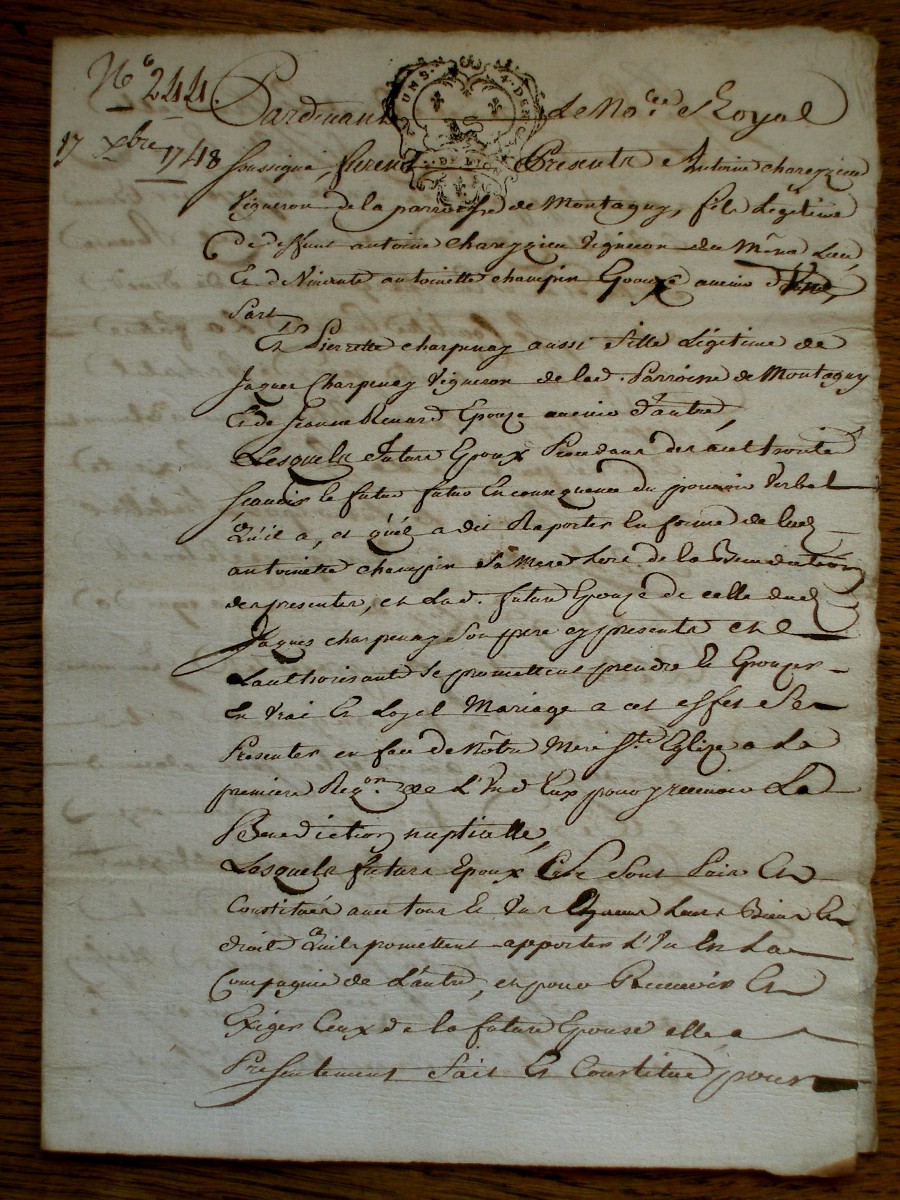 N.º 244.
17 xbre 1748
UN S. 4. DEN
DE LION
Pardevant Le No.re Royal
soussigné, furent Presents Antoine chareyzieu
Vigneron de la parroisse de Montagny, fils Légitime
de deffunt antoine Chareyzieu Vigneron du Même Lieu
Et de Vivente antoinette champin Epouzé avenir d'Une
Part
Et Pierrette charpenay aussi fille Légitime de
Jaques Charpenay Vigneron de lad. Parroisse de Montagny
Et de Jeanne Renard Epouze avenir d'autre
Lesquels futurs Epoux Procedans des authorités
Scavoir le futur en consequence du pouvoir Verbal
Qu'il a, et qu'il a dit Raporter En forme de lad.
antoinette champin Sa Mere Lors de la Benediction
des presentes, et Lad. future Epouze de celle dud.
Jaques charpenay Son pere cy present et
Lauthorisant Se promettent prendre Et Epouzer
En Vrai Et Loyal Mariage a cet effet Se
Presenter en face de Nôtre Mere S.te Eglize a La
premiere Req.on de L'Un d'Eux pour y recevoir La
Benediction nuptialle,
Lesquels futurs Epoux Se Sont Fait Et
Constitués avec tous Et Uns chacuns Leurs Biens Et
droits Qu'ils promettent apporter L'Un En La
Compagnie de L'autre, et pour Recevoir Et
Exiger Ceux de la future Epouse elle a
Presentement Fait Et Constitué pour